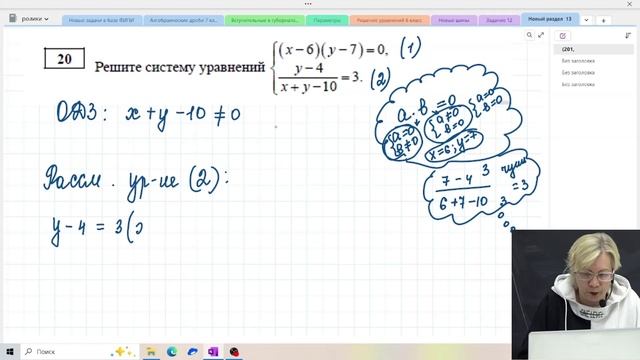 ролики
Новые задачи в базе ФИПИ
Алгебраические дроби 7 кл
Вступительные в губернато...
Параметры
Решение уравнений 6 класс
Новые шины
Задачи 12
Новый раздел 13
20
Решите систему уравнений
(x-6)(y-7)=0, (1)
(y-4)/(x+y-10)=3. (2)
ОДЗ: x+y-10≠0
Рассм. ур-ие (2):
y-4=3(
a·b=0
{a=0 b≠0
{a≠0 b=0
{a=0 b=0
x=6; y=7
(7-4)/(6+7-10) 3 3 =3
(201,
Без заголовка
Без заголовка
Без заголовка
Поиск